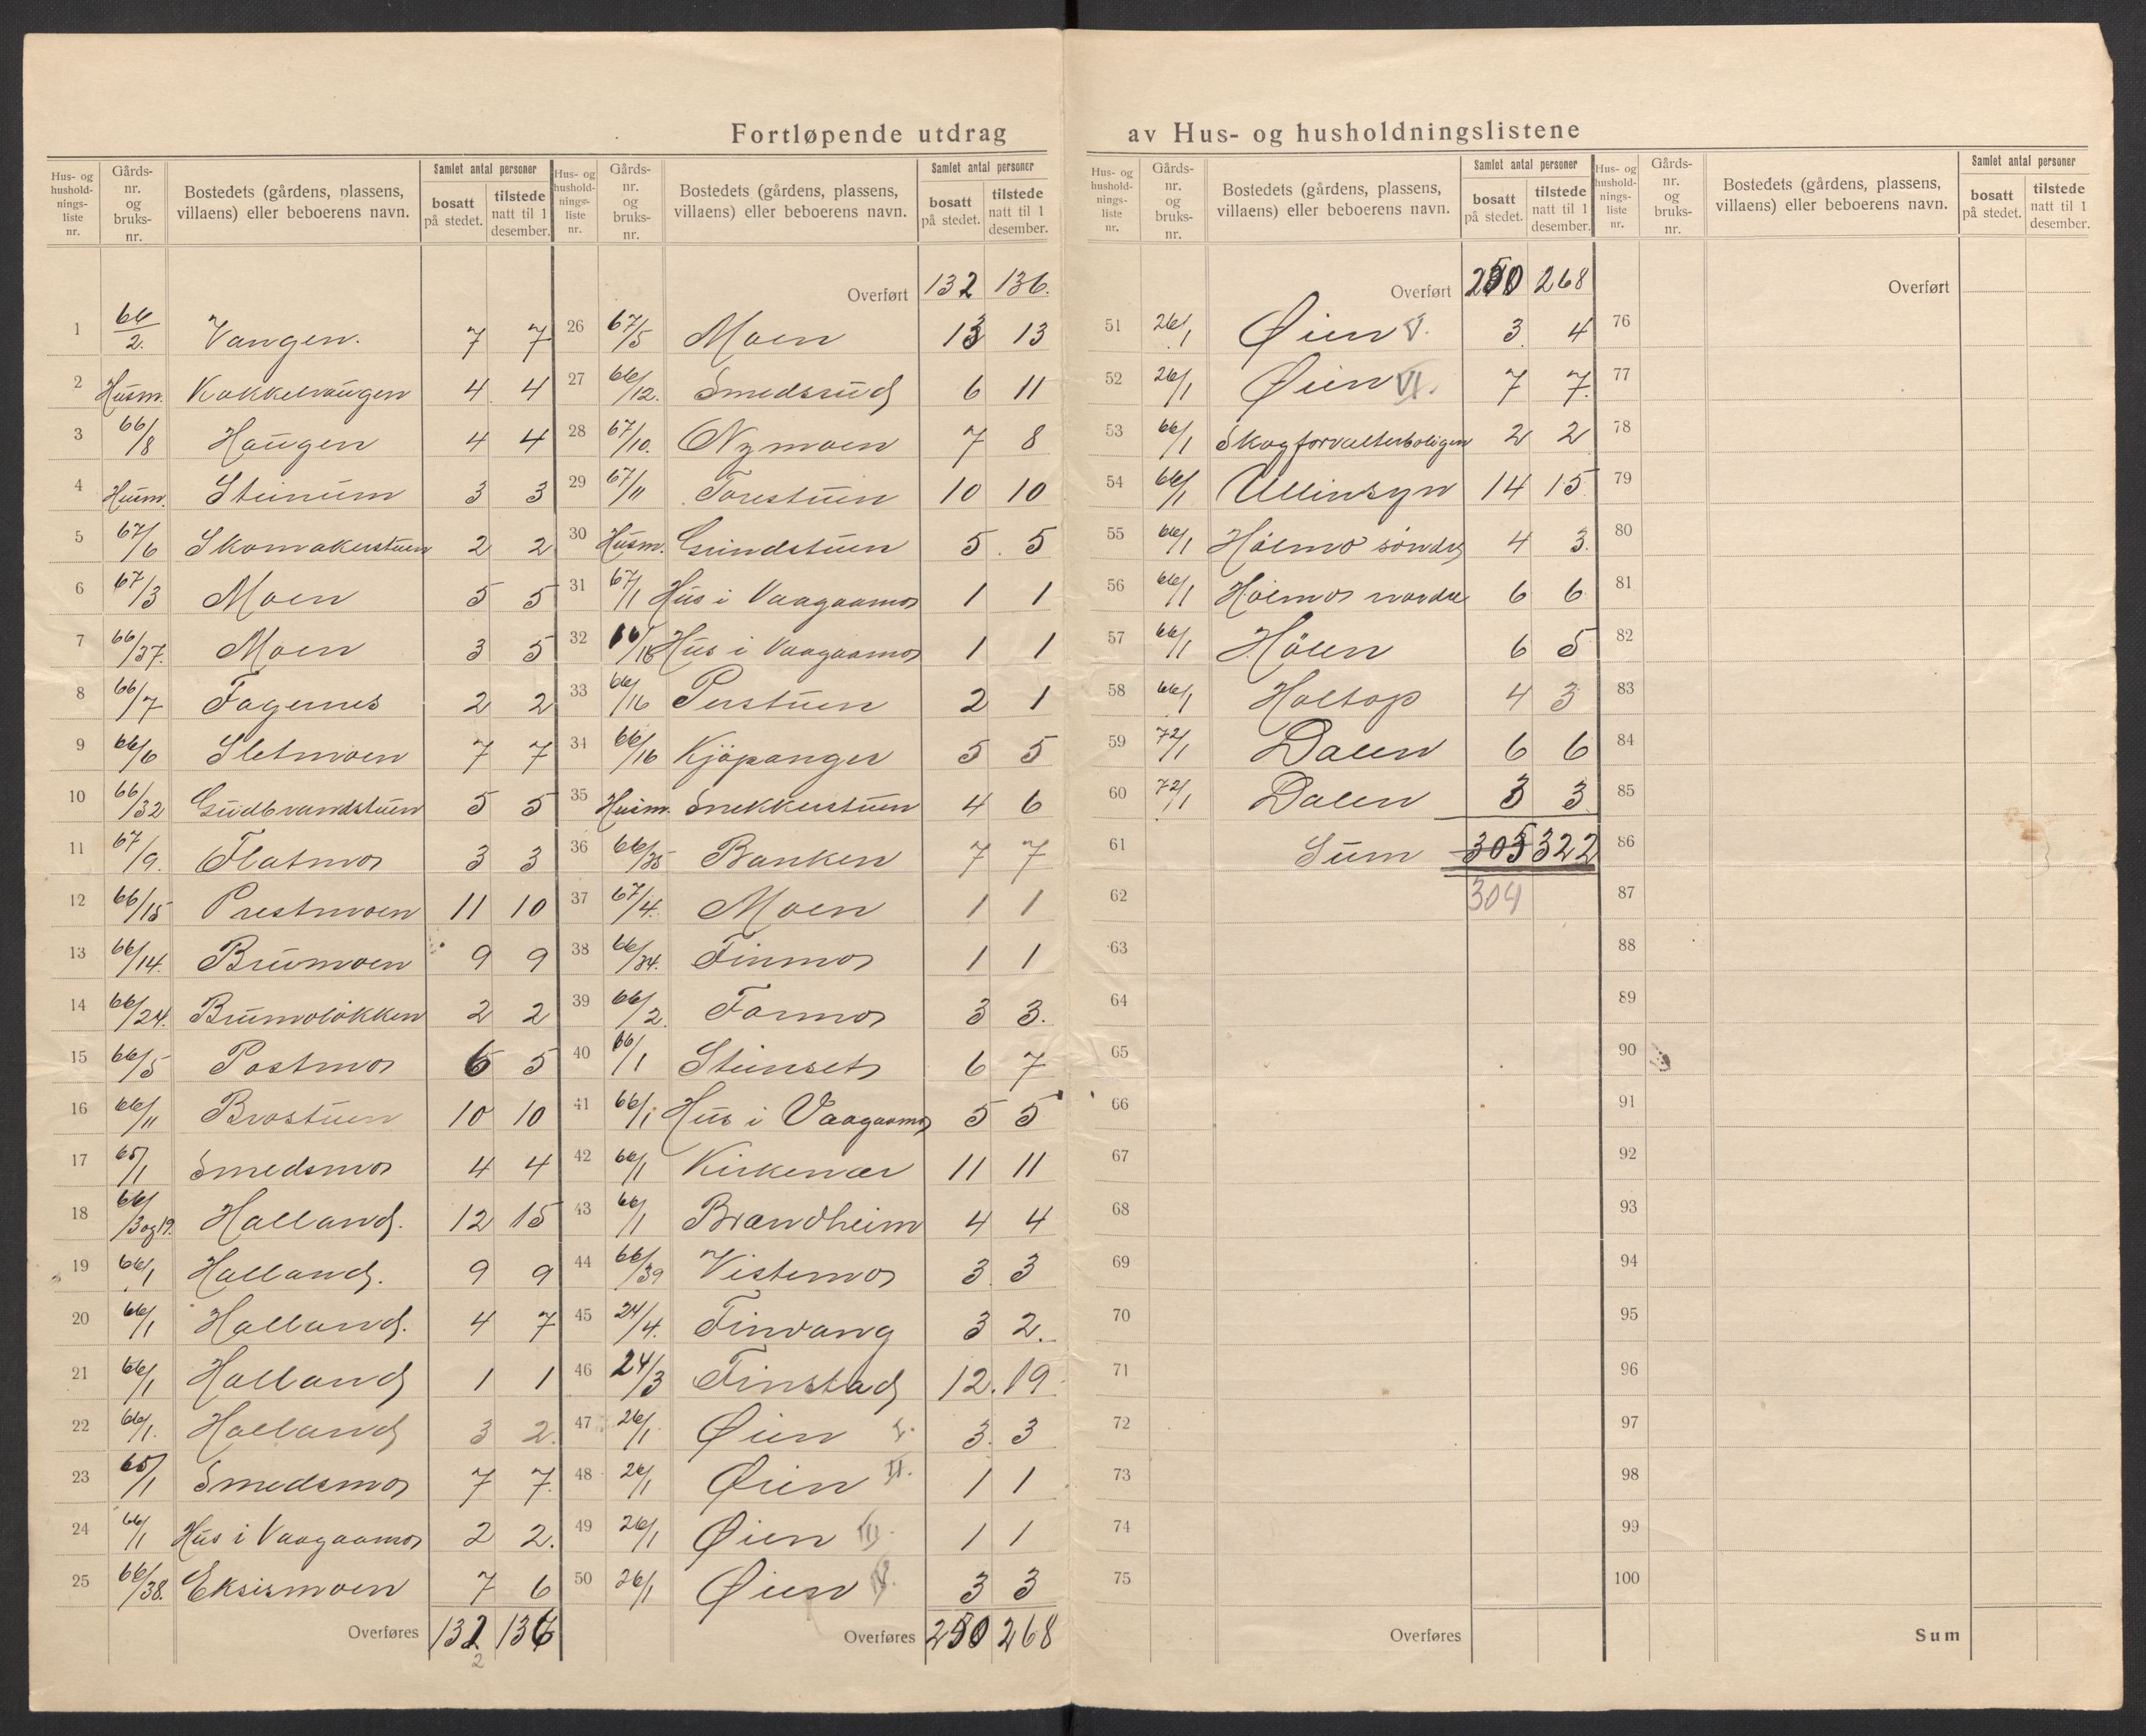 Fortløpende utdrag av Hus- og husholdningslistene
Hus- og hushold-nings-liste nr. Gårds-nr. og bruks-nr. Bostedets (gårdens, plassens, villaens) eller beboerens navn. Samlet antal personer bosatt på stedet. tilstede natt til 1 desember.
1 66/2. Vangen. 7 7
2 Husm. Kakkelvaugen 4 4
3 66/8 Haugen 4 4
4 Husm. Steinum 3 3
5 67/6 Skomakerstuen 2 2
6 67/3 Moen 5 5
7 66/37. Moen 3 5
8 66/7 Fagernes 2 2
9 66/6 Sletmoen 7 7
10 66/32 Gudbrandstuen 5 5
11 67/9. Flatmo 3 3
12 66/15 Prestmoen 11 10
13 66/14. Brumoen 9 9
14 66/24. Brumoløkken 2 2
15 66/5 Postmo 6 5
16 66/11 Brostuen 10 10
17 65/1 Smedsmo 4 4
18 66/3 og 19. Halland. 12 15
19 66/1 Halland. 9 9
20 66/1 Halland. 4 7
21 66/1 Halland 1 1
22 66/1. Halland 3 2.
23 65/1 Smedsmo 7 7.
24 66/1 Hus i Vaagaamo 2 2.
25 66/38. Eksismoen 7 6
Overføres 132 136
2
Hus- og hushold-nings-liste nr. Gårds-nr. og bruks-nr. Bostedets (gårdens, plassens, villaens) eller beboerens navn. Samlet antal personer bosatt på stedet. tilstede natt til 1 desember.
Overført 132 136.
26 67/5 Moen 13 13
27 66/12. Smedsrud 6 11
28 67/10. Nymoen 7 8
29 67/11 Torestuen 10 10
30 Husm. Grindstuen 5. 5
31 67/1 Hus i Vaagaamo 1 1
32 66/18 Hus i Vaagaamo 1 1
33 66/16 Perstuen 2 1
34 66/16 Kjöpanger 5 5
35 Husm. Snekkerstuen 4 6
36 66/35 Banken 7 7
37 67/4. Moen 1 1
38 66/34. Finmo 1 1
39 66/2. Formo 3 3.
40 66/1 Steinset 6 7
41 66/1 Hus i Vaagaamo 5 5
42 66/1 Kirkenær 11 11
43 66/1 Brandheim 4 4
44 66/39 Vistemo 3. 3
45 24/4. Finvang 3 2.
46 24/3 Finstad 12. 19
47 26/1 Øien I. 3. 3
48 26/1 Øien II. 1 1
49 26/1 Øien III. 1 1
50 26/1 Øien IV. 3 3
Overføres 250 268
Hus- og hushold-nings-liste nr. Gårds-nr. og bruks-nr. Bostedets (gårdens, plassens, villaens) eller beboerens navn. Samlet antal personer bosatt på stedet. tilstede natt til 1 desember.
Overført 250 268
51 26/1 Øien V. 3. 4
52 26/1 Øien VI. 7 7.
53 66/1 Skogforvalterboligen 2 2
54 66/1 Ullinsyn 14 15
55 66/1 Hölmo söndre 4 3.
56 66/1 Hölmo nordre 6 6
57 66/1 Hölen 6 5
58 66/1 Holtop 4 3
59 72/1 Dalen 6 6
60 72/1 Dalen 3 3
61 Sum 305 322
62 304
63
64
65
66
67
68
69
70
71
72
73
74
75
Overføres
Hus- og hushold-nings-liste nr. Gårds-nr. og bruks-nr. Bostedets (gårdens, plassens, villaens) eller beboerens navn. Samlet antal personer bosatt på stedet. tilstede natt til 1 desember.
Overført
76
77
78
79
80
81
82
83
84
85
86
87
88
89
90
91
92
93
94
95
96
97
98
99
100
Sum